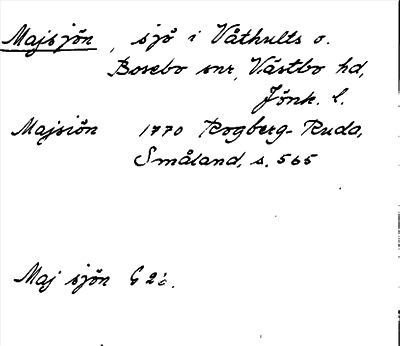 Majsjön, sjö i Våthults o.
Bosebo snr, Västbo hd,
Jönk. l.
Majsiön 1770 Rogberg-Ruda,
Småland, s. 565
Maj sjön G 2